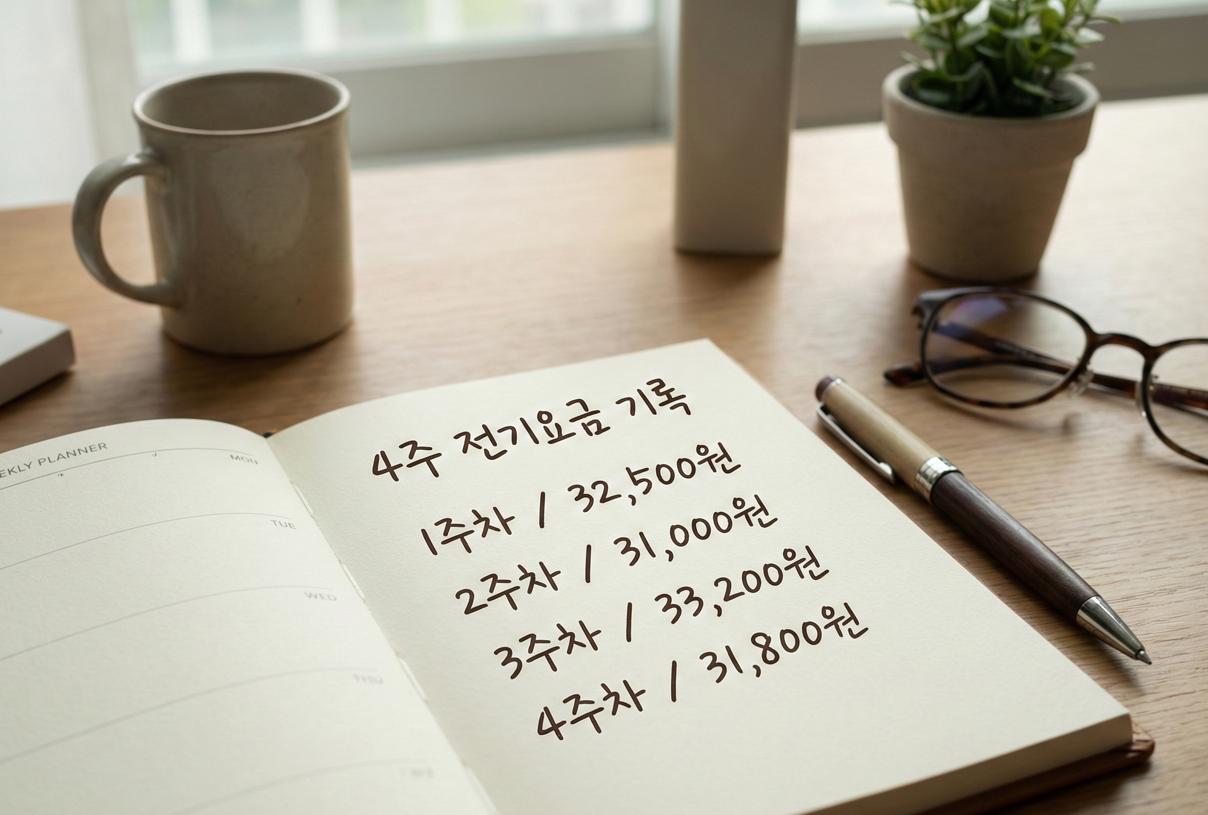 WEEKLY PLANNER
MON
TUE
WED
THU
4주 전기요금 기록
1주차 / 32,500원
2주차 / 31,000원
3주차 / 33,200원
4주차 / 31,800원